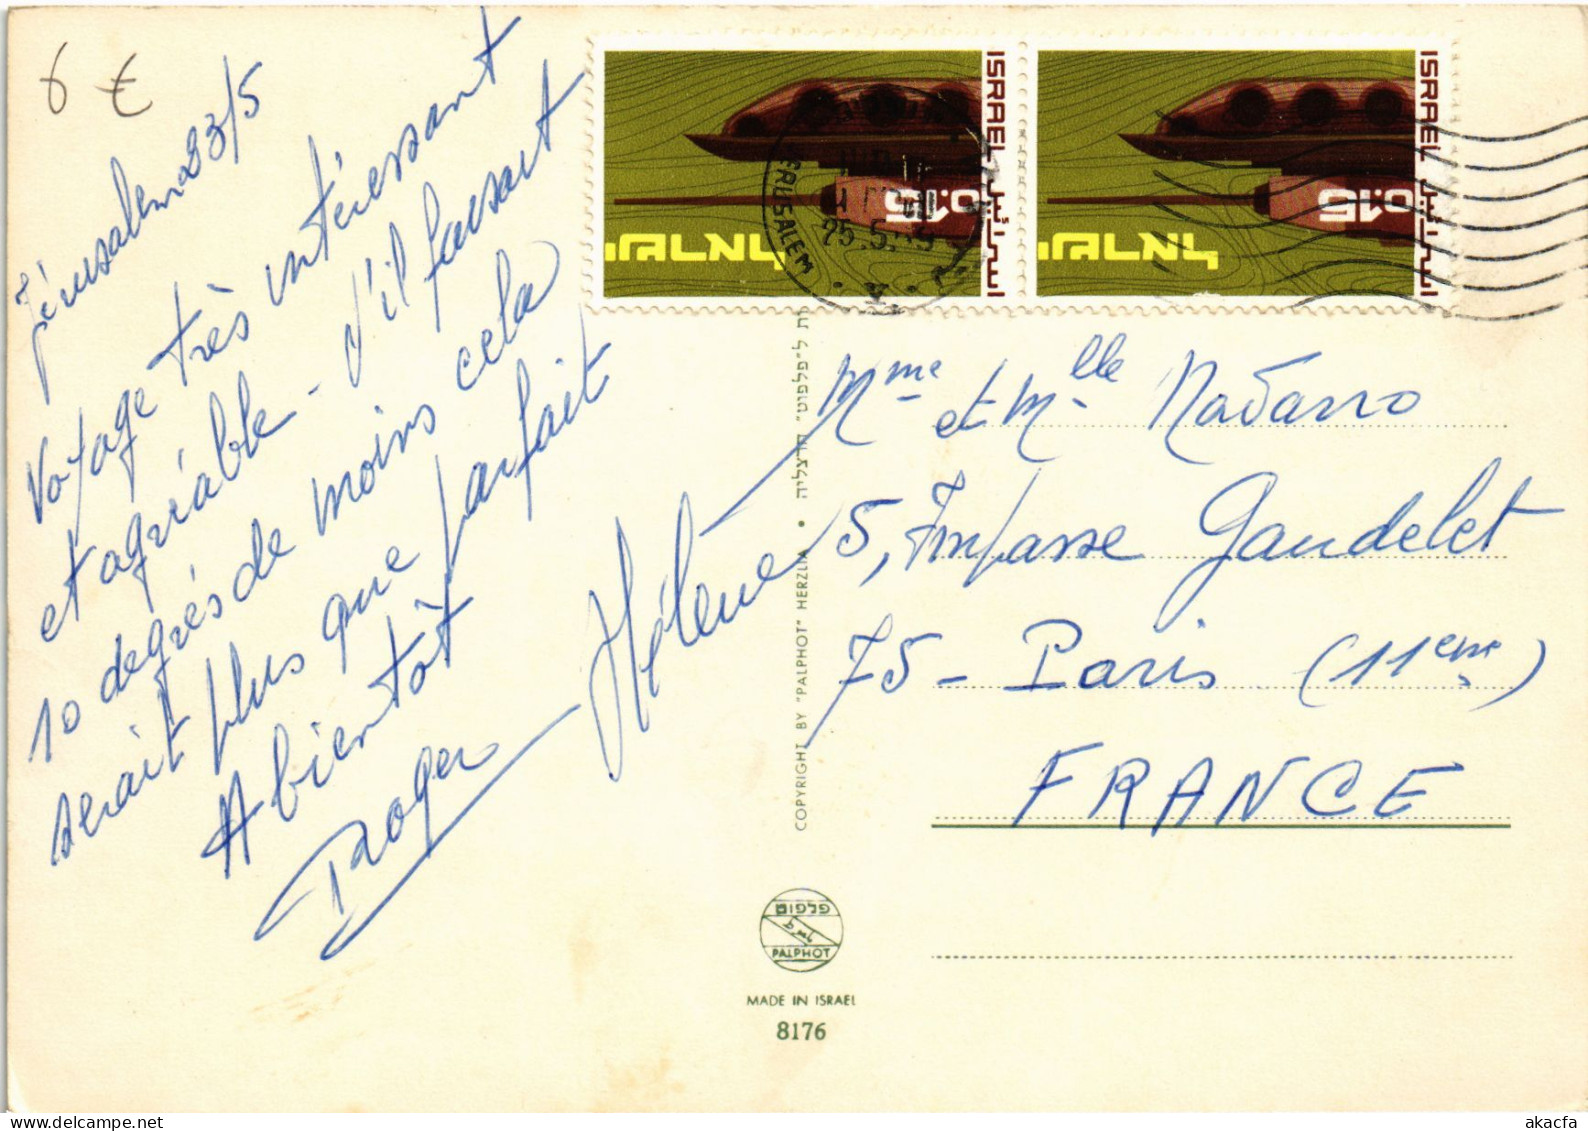 6 €
Jérusalem 23/5
Voyage très intéressant
et agréable - d'il faisait
10 degrés de moins cela
serait plus que parfait
A bientôt
Roger Hélène
ISRAEL
إسرائيل
0.15
ישראל
ISRAEL
إسرائيل
0.15
ישראל
JERUSALEM
25.5.69
Mme et Mlle Navarro
5, Impasse Gaudelet
75 - Paris (11eme)
FRANCE
ת ל"פלפוט" הרצליה • COPYRIGHT BY "PALPHOT" HERZLIA
פלפוט
PALPHOT
MADE IN ISRAEL
8176
delcampe.net
akacfa